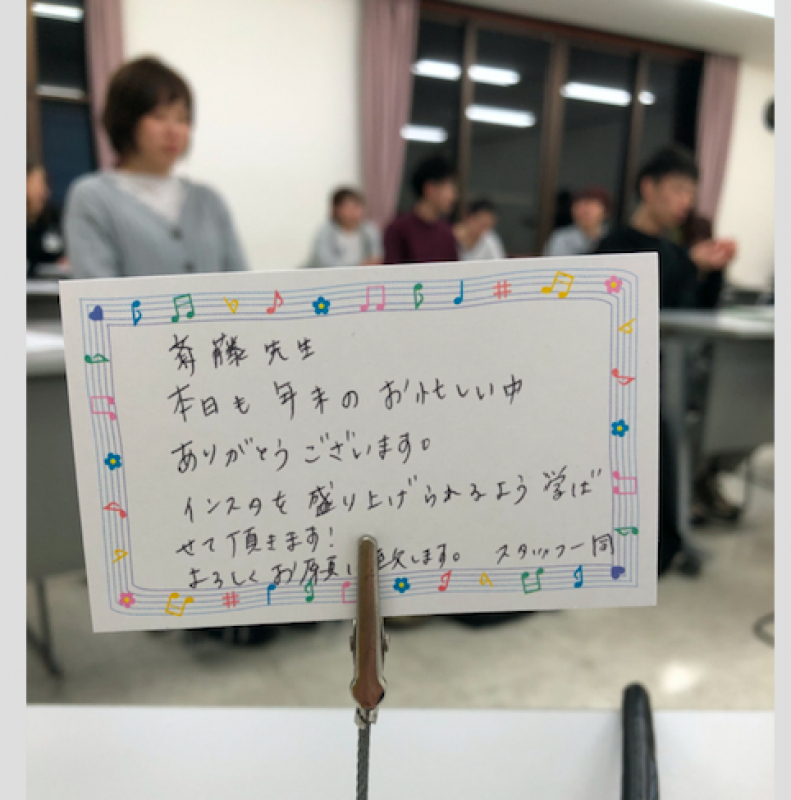 斉藤先生
本日も年末のお忙しい中
ありがとうございます。
インスタを盛り上げられるよう学ば
せて頂きます!
よろしくお願い致します。 スタッフ一同